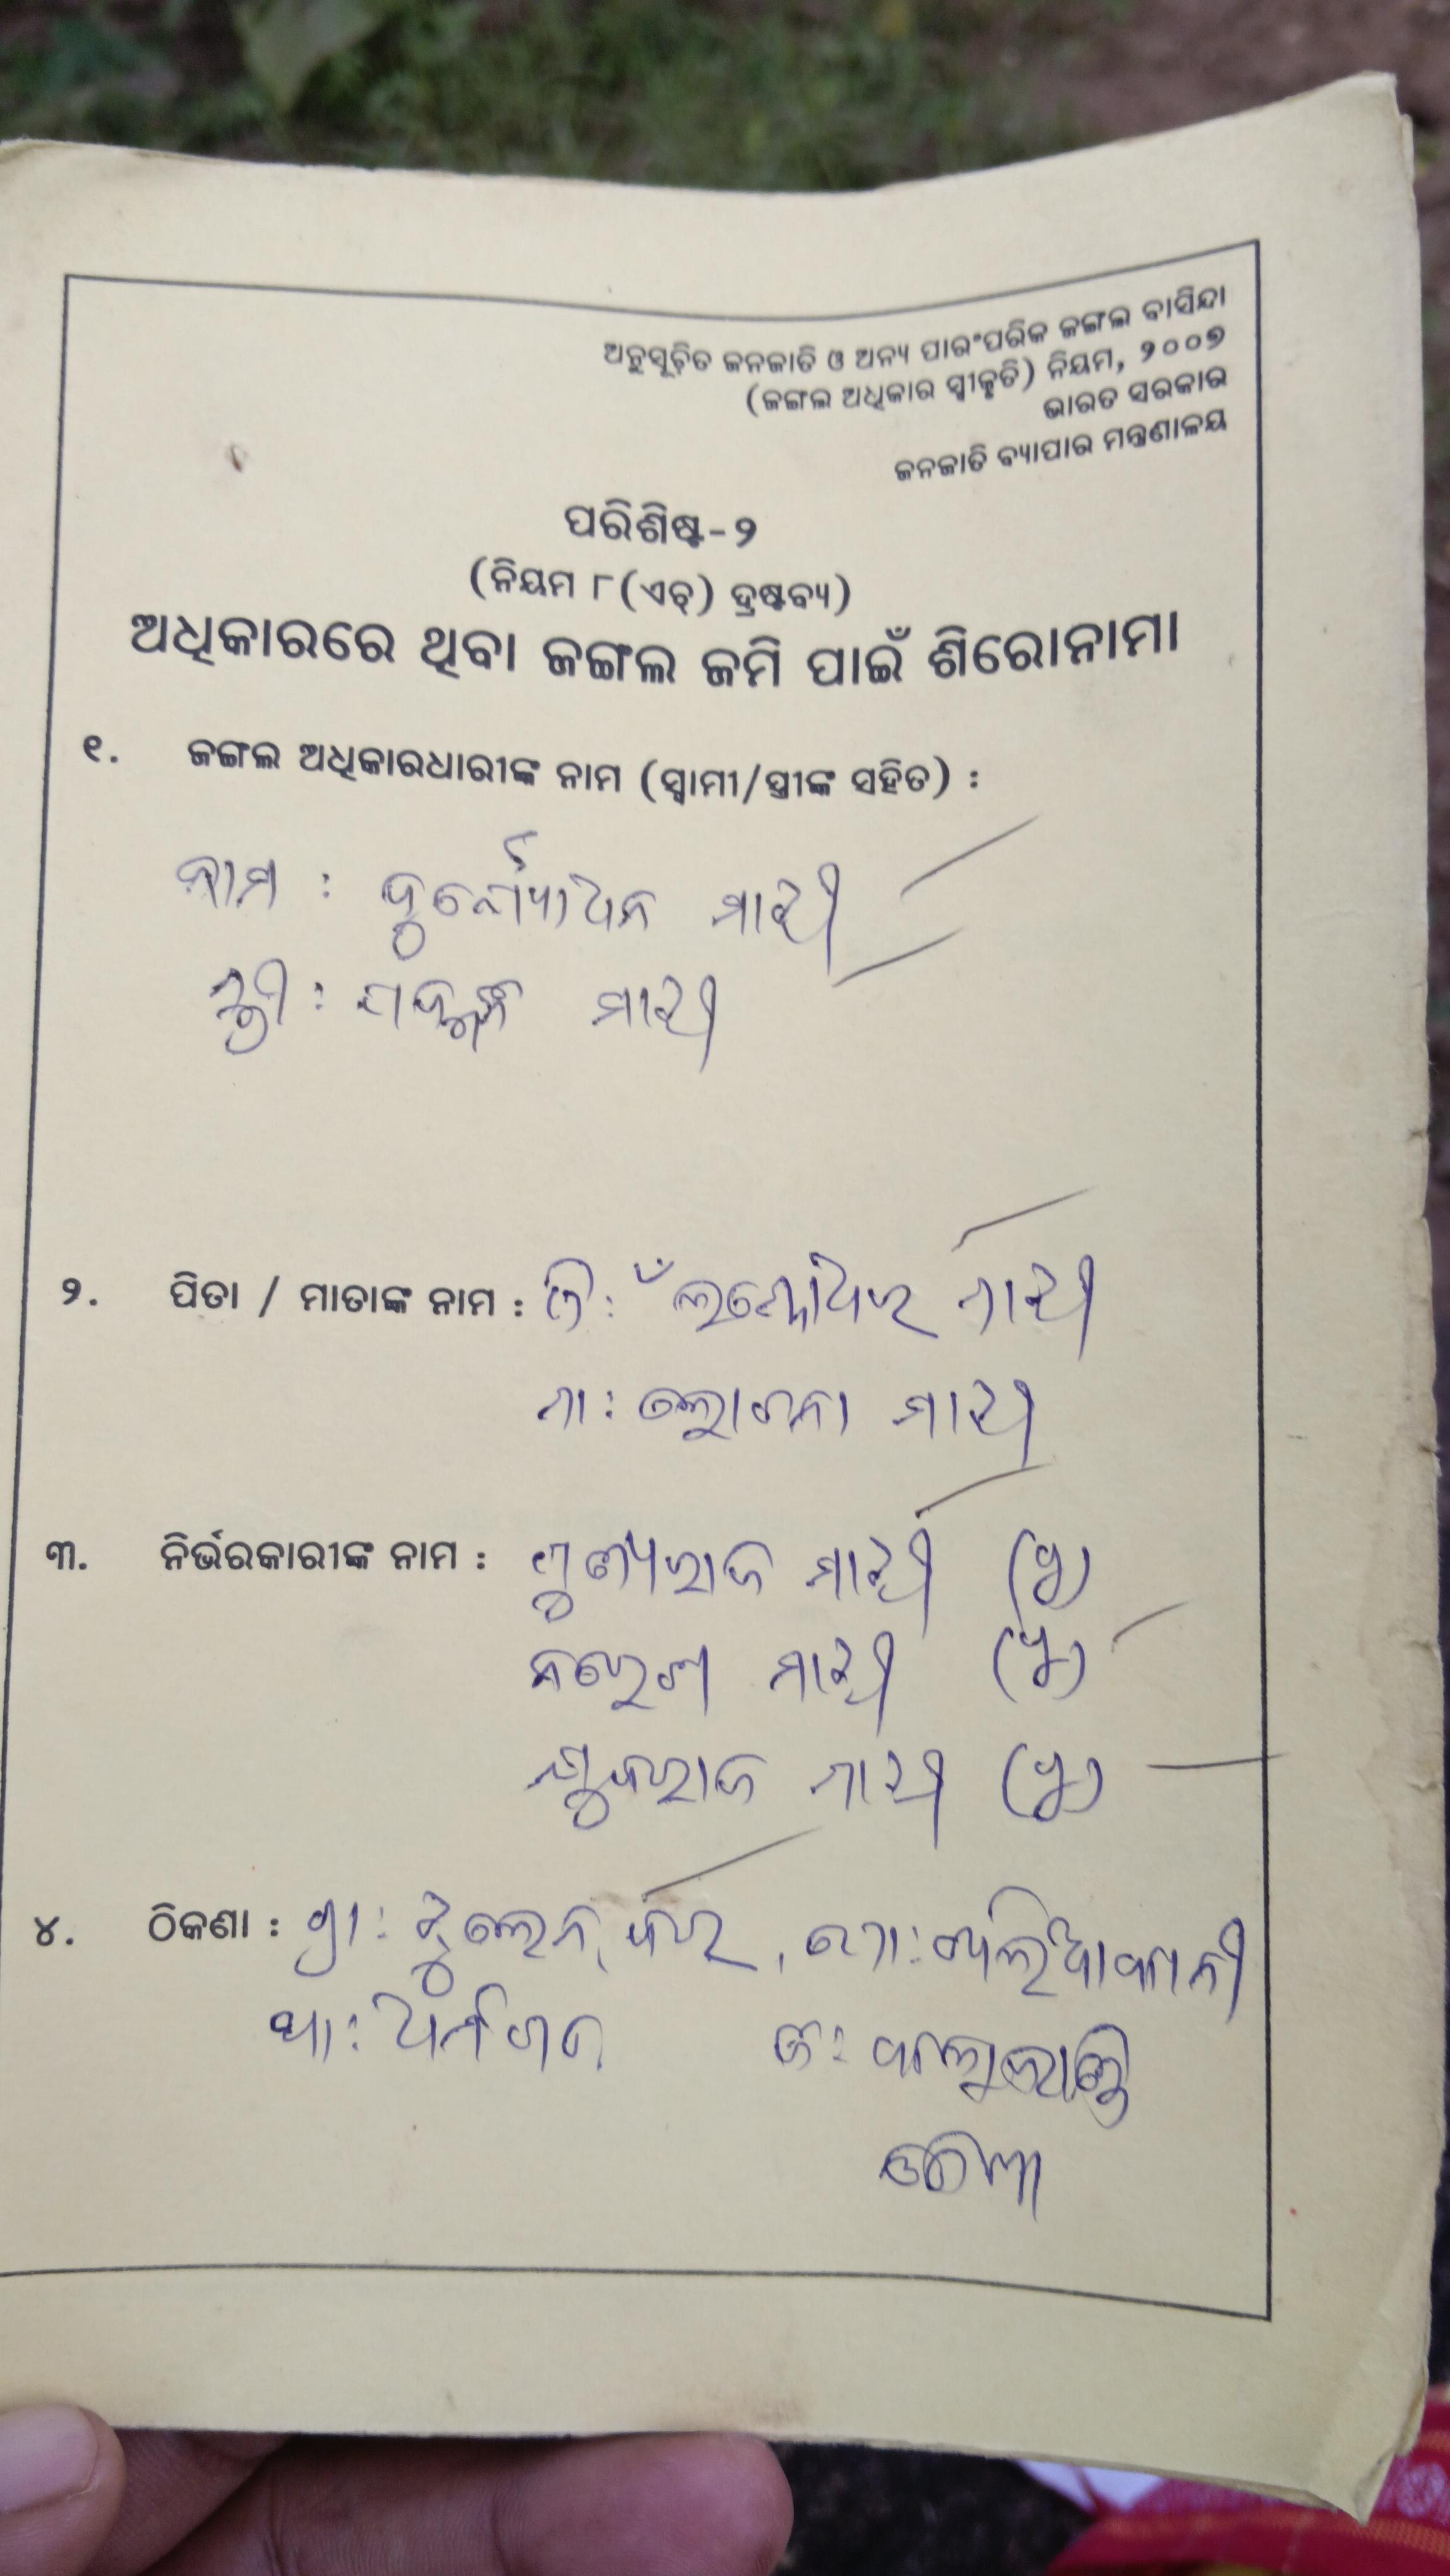 ଅନୁସୂଚିତ ଜନଜାତି ଓ ଅନ୍ୟ ପାରଂପରିକ ଜଙ୍ଗଲ ବାସିନ୍ଦା
(ଜଙ୍ଗଲ ଅଧିକାର ସ୍ୱୀକୃତି) ନିୟମ, ୨୦୦୭
ଭାରତ ସରକାର
ଜନଜାତି ବ୍ୟାପାର ମନ୍ତ୍ରଣାଳୟ
ପରିଶିଷ୍ଟ-୨
(ନିୟମ ୮(ଏଚ୍) ଦ୍ରଷ୍ଟବ୍ୟ)
ଅଧିକାରରେ ଥିବା ଜଙ୍ଗଲ ଜମି ପାଇଁ ଶିରୋନାମା
୧. ଜଙ୍ଗଲ ଅଧିକାରଧାରୀଙ୍କ ନାମ (ସ୍ୱାମୀ/ସ୍ତ୍ରୀଙ୍କ ସହିତ) :
ନାମ : ଦୁର୍ଯ୍ୟୋଧନ ମାଝୀ
ସ୍ତ୍ରୀ : ମାଝୀ
୨. ପିତା / ମାତାଙ୍କ ନାମ : ପି: ମାଝୀ
ମା: ମାଝୀ
୩. ନିର୍ଭରକାରୀଙ୍କ ନାମ : ମାଝୀ (ପୁ)
ମାଝୀ (ପୁ)
ଯୁବରାଜ ମାଝୀ (ପୁ)
୪. ଠିକଣା : ଗ୍ରା: ପୋ:
ଥା: ଧର୍ମଗଡ ଜି: କଳାହାଣ୍ଡି
ଓଡିଶା